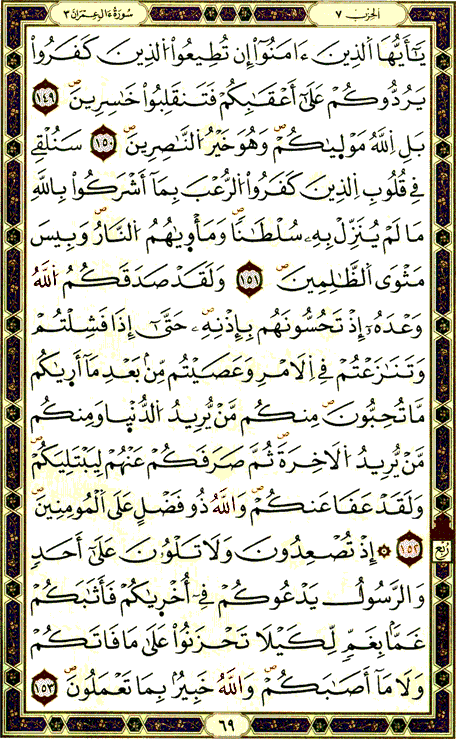 سُورَةُ ءَالِ عِمْرَانَ ٣
الحِزْب ٧
يَٰٓأَيُّهَا اَ۬لذِينَ ءَامَنُوٓاْ إِن تُطِيعُواْ اُ۬لذِينَ كَفَرُواْ
يَرُدُّوكُمْ عَلَىٰٓ أَعْقَٰبِكُمْ فَتَنقَلِبُواْ خَٰسِرِينَۖ ١٤٩
بَلِ اِ۬للَّهُ مَوْل۪يٰكُمْۖ وَهُوَ خَيْرُ اُ۬لنَّٰصِرِينَۖ ١٥٠ سَنُلْقِے
فِے قُلُوبِ اِ۬لذِينَ كَفَرُواْ اُ۬لرُّعْبَ بِمَآ أَشْرَكُواْ بِاللَّهِ
مَا لَمْ يُنَزِّلْ بِهِۦ سُلْطَٰناٗۖ وَمَأْو۪يٰهُمُ اُ۬لنَّارُۖ وَبِيسَ
مَثْوَى اَ۬لظَّٰلِمِينَۖ ١٥١ وَلَقَدْ صَدَقَكُمُ اُ۬للَّهُ
وَعْدَهُۥٓ إِذْ تَحُسُّونَهُم بِإِذْنِهِۦۖ حَتَّىٰٓ إِذَا فَشِلْتُمْ
وَتَنَٰزَعْتُمْ فِے اِ۬لَامْرِ وَعَصَيْتُم مِّنۢ بَعْدِ مَآ أَر۪يٰكُم
مَّا تُحِبُّونَۖ مِنكُم مَّنْ يُّرِيدُ اُ۬لدُّنْي۪ا وَمِنكُم
مَّنْ يُّرِيدُ اُ۬لَاخِرَةَۖ ثُمَّ صَرَفَكُمْ عَنْهُمْ لِيَبْتَلِيَكُمْۖ
وَلَقَدْ عَفَا عَنكُمْۖ وَاللَّهُ ذُو فَضْلٍ عَلَى اَ۬لْمُومِنِينَۖ
١٥٢ ۞ إِذْ تُصْعِدُونَ وَلَا تَلْوُۥنَ عَلَىٰٓ أَحَدٖ
وَالرَّسُولُ يَدْعُوكُمْ فِےٓ أُخْر۪يٰكُمْ فَأَثَٰبَكُمْ
غَمَّاۢ بِغَمّٖ لِّكَيْلَا تَحْزَنُواْ عَلَىٰ مَا فَاتَكُمْ
وَلَا مَآ أَصَٰبَكُمْۖ وَاللَّهُ خَبِيرُۢ بِمَا تَعْمَلُونَۖ ١٥٣
ربع
٦٩